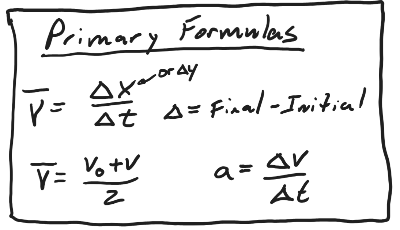 Primary Formulas
V̅ = Δx/Δt ← or Δy Δ = Final - Initial
V̅ = (V₀ + V)/2 a = ΔV/Δt